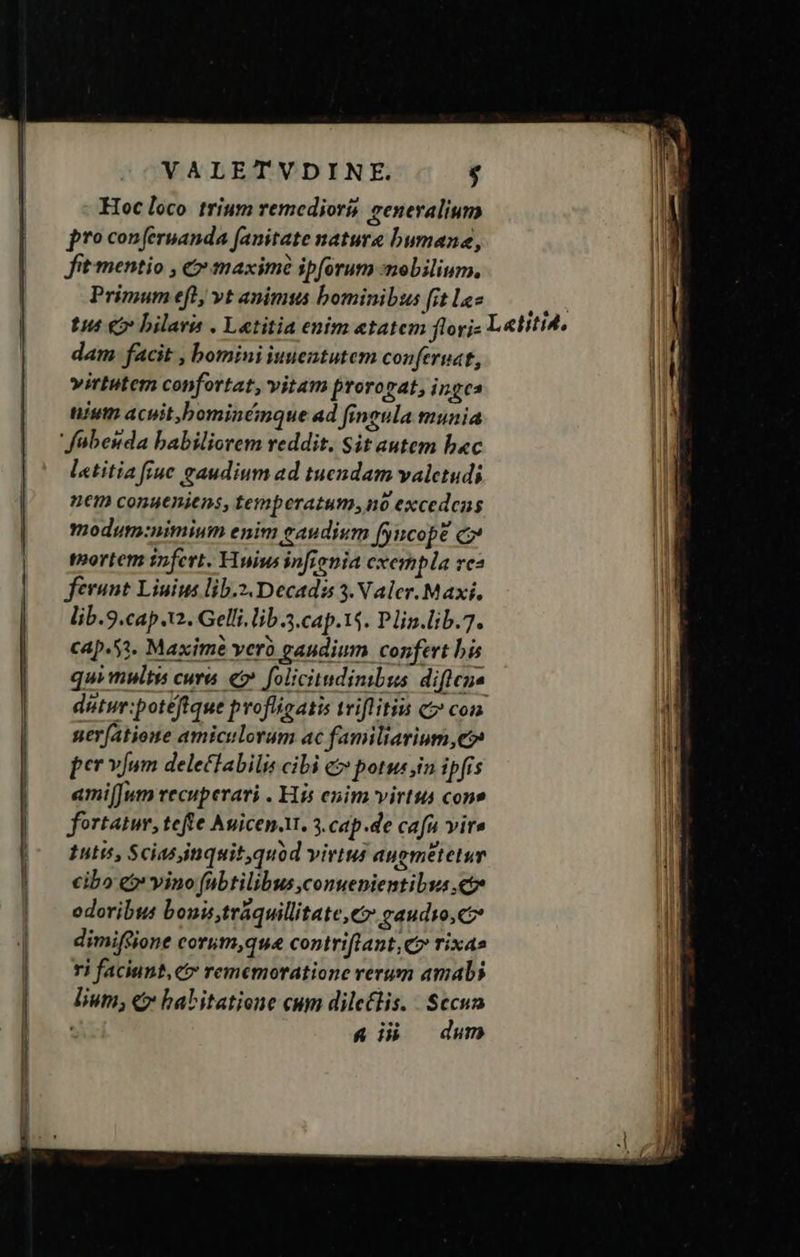 VALETVDINE. 5
Hoc loco trium remediorũ generalium
pro conſeruanda ſanitate naturæ humanæ,
fit mentio , & maximè ipſorum nobilium.
Primum eſt, vt animus hominibus ſit læ-
tus & hilaris . Lætitia enim ætatem flori- Lætitia.
dam facit , homini iuuentutem conſeruat,
virtutem confortat, vitam prorogat, inge-
nium acuit, hominémque ad ſingula munia
ſubeunda habiliorem reddit. Sit autem hæc
lætitia ſiue gaudium ad tuendam valetudi
nem conueniens, temperatum, nõ excedens
modum: nimium enim gaudium ſyncopẽ &
mortem infert. Huius inſignia exempla re-
ferunt Liuius lib.2. Decadis 3. Valer. Maxi.
lib.9.cap.12. Gelli. lib.3.cap.15. Plin.lib.7.
cap.53. Maximè verò gaudium confert his
qui multis curis & ſolicitudinibus diſten-
dũtur: potéſtque profligatis triſtitiis & con
uerſatione amiculorum ac familiarium, &
per vſum delectabilis cibi & potus, in ipſis
amiſſum recuperari . His enim virtus con-
fortatur, teſte Auicen.11. 3.cap.de caſu vir-
tutis, Scias, inquit, quòd virtus augmẽtetur
cibo & vino ſubtilibus, conuenientibus, &
odoribus bonis, trãquillitate, & gaudio, &
dimiſsione eorum, quæ contriſtant, & rixa-
ri faciunt, & rememoratione rerum amabi
lium, & habitatione cum dilectis. Secun
a iii dum